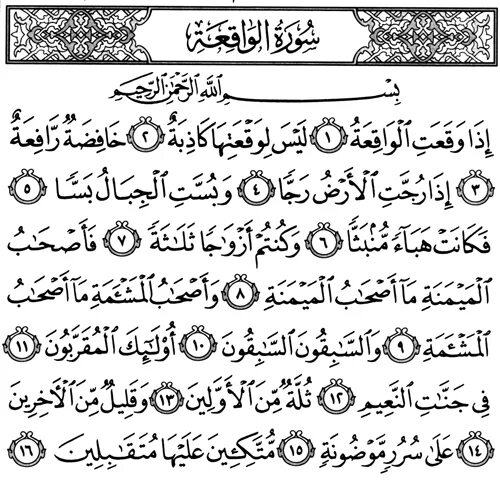 سُورَةُ الوَاقِعَةِ
بِسْمِ اللَّهِ الرَّحْمَٰنِ الرَّحِيمِ
إِذَا وَقَعَتِ ٱلْوَاقِعَةُ ١ لَيْسَ لِوَقْعَتِهَا كَاذِبَةٌ ٢ خَافِضَةٌ رَّافِعَةٌ
٣ إِذَا رُجَّتِ ٱلْأَرْضُ رَجًّا ٤ وَبُسَّتِ ٱلْجِبَالُ بَسًّا ٥
فَكَانَتْ هَبَآءً مُّنۢبَثًّا ٦ وَكُنتُمْ أَزْوَٰجًا ثَلَٰثَةً ٧ فَأَصْحَٰبُ
ٱلْمَيْمَنَةِ مَآ أَصْحَٰبُ ٱلْمَيْمَنَةِ ٨ وَأَصْحَٰبُ ٱلْمَشْـَٔمَةِ مَآ أَصْحَٰبُ
ٱلْمَشْـَٔمَةِ ٩ وَٱلسَّٰبِقُونَ ٱلسَّٰبِقُونَ ١٠ أُو۟لَٰٓئِكَ ٱلْمُقَرَّبُونَ ١١
فِى جَنَّٰتِ ٱلنَّعِيمِ ١٢ ثُلَّةٌ مِّنَ ٱلْأَوَّلِينَ ١٣ وَقَلِيلٌ مِّنَ ٱلْءَاخِرِينَ
١٤ عَلَىٰ سُرُرٍ مَّوْضُونَةٍ ١٥ مُّتَّكِـِٔينَ عَلَيْهَا مُتَقَٰبِلِينَ ١٦